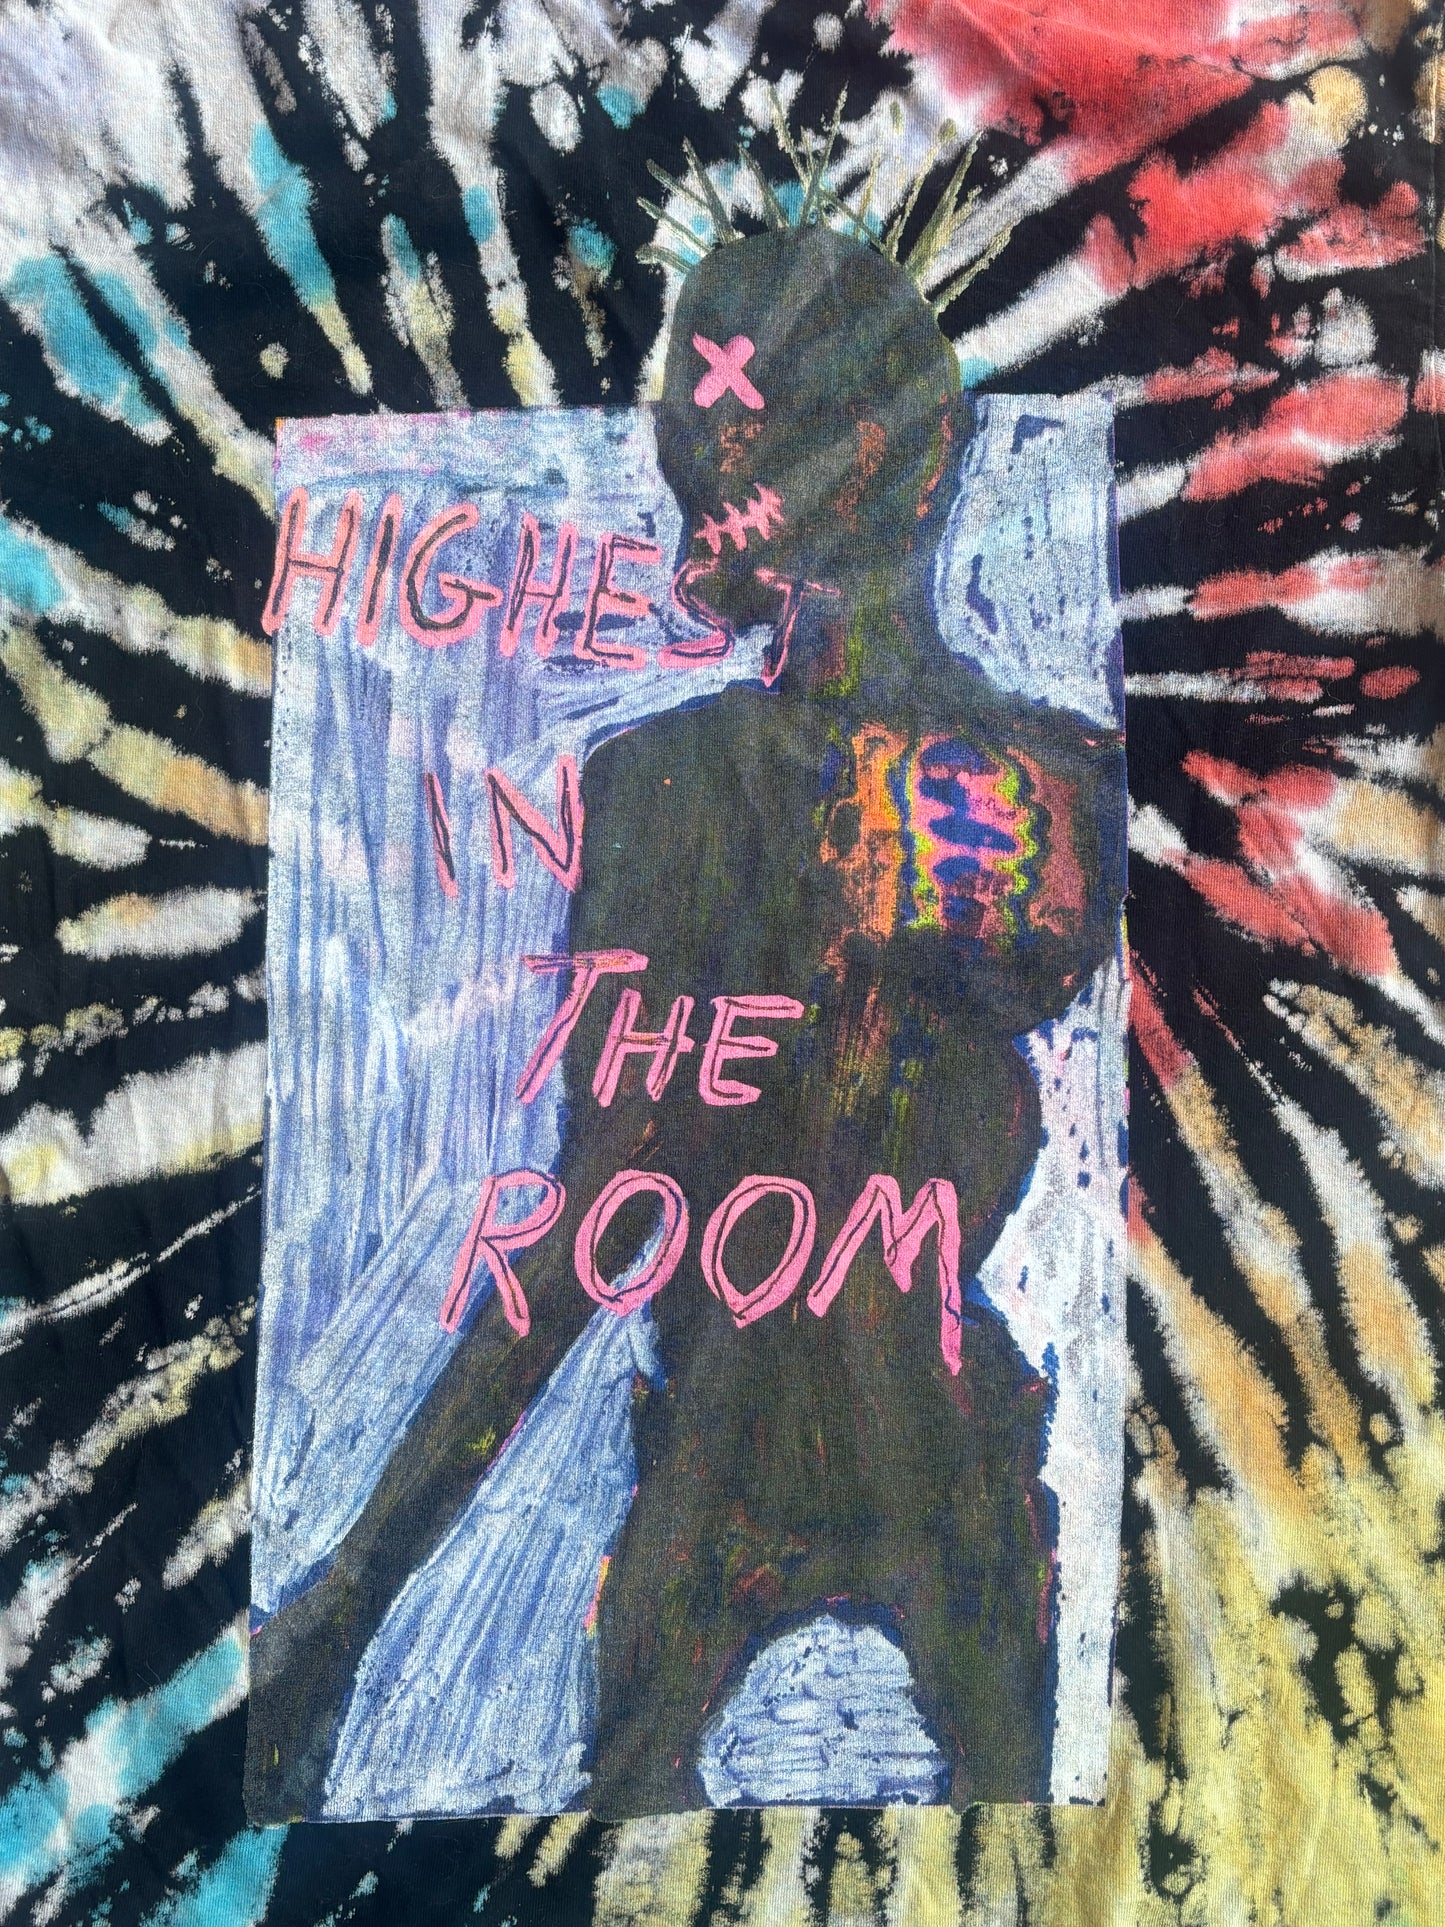 HIGHEST
IN
THE
ROOM